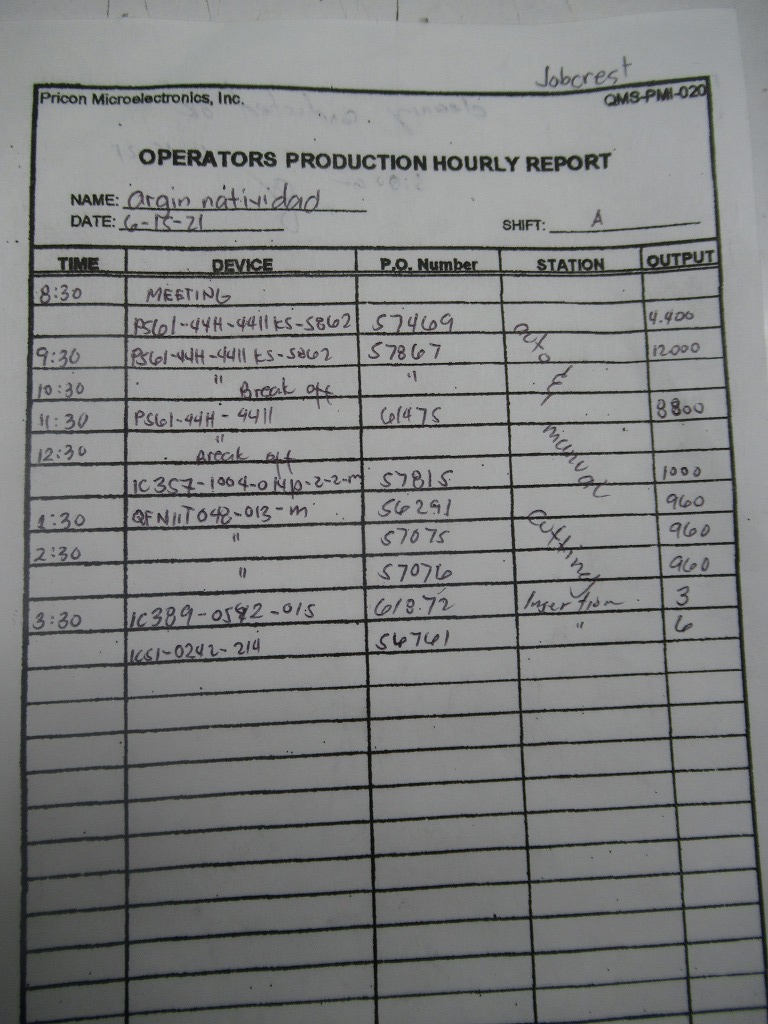 Jobcrest
Pricon Microelectronics, Inc. QMS-PMI-020
OPERATORS PRODUCTION HOURLY REPORT
NAME: argin natividad
DATE: 6-15-21 SHIFT: A
TIME DEVICE P.O. Number STATION OUTPUT
8:30 MEETING
PS61-44H-4411 KS-5862 57469 4.400
9:30 PS61-44H-4411 KS-5862 57867 12000
10:30 " Break off "
11:30 PS61-44H-4411 61475 8800
12:30 " Break off
IC357-1004-014p-2-2-m 57815 1000
1:30 QFN11T048-013-m 56291 960
2:30 " 57075 960
" 57076 960
auto & manual cutting
3:30 IC389-0592-015 61872 Insertion 3
IC51-0242-214 56761 " 6